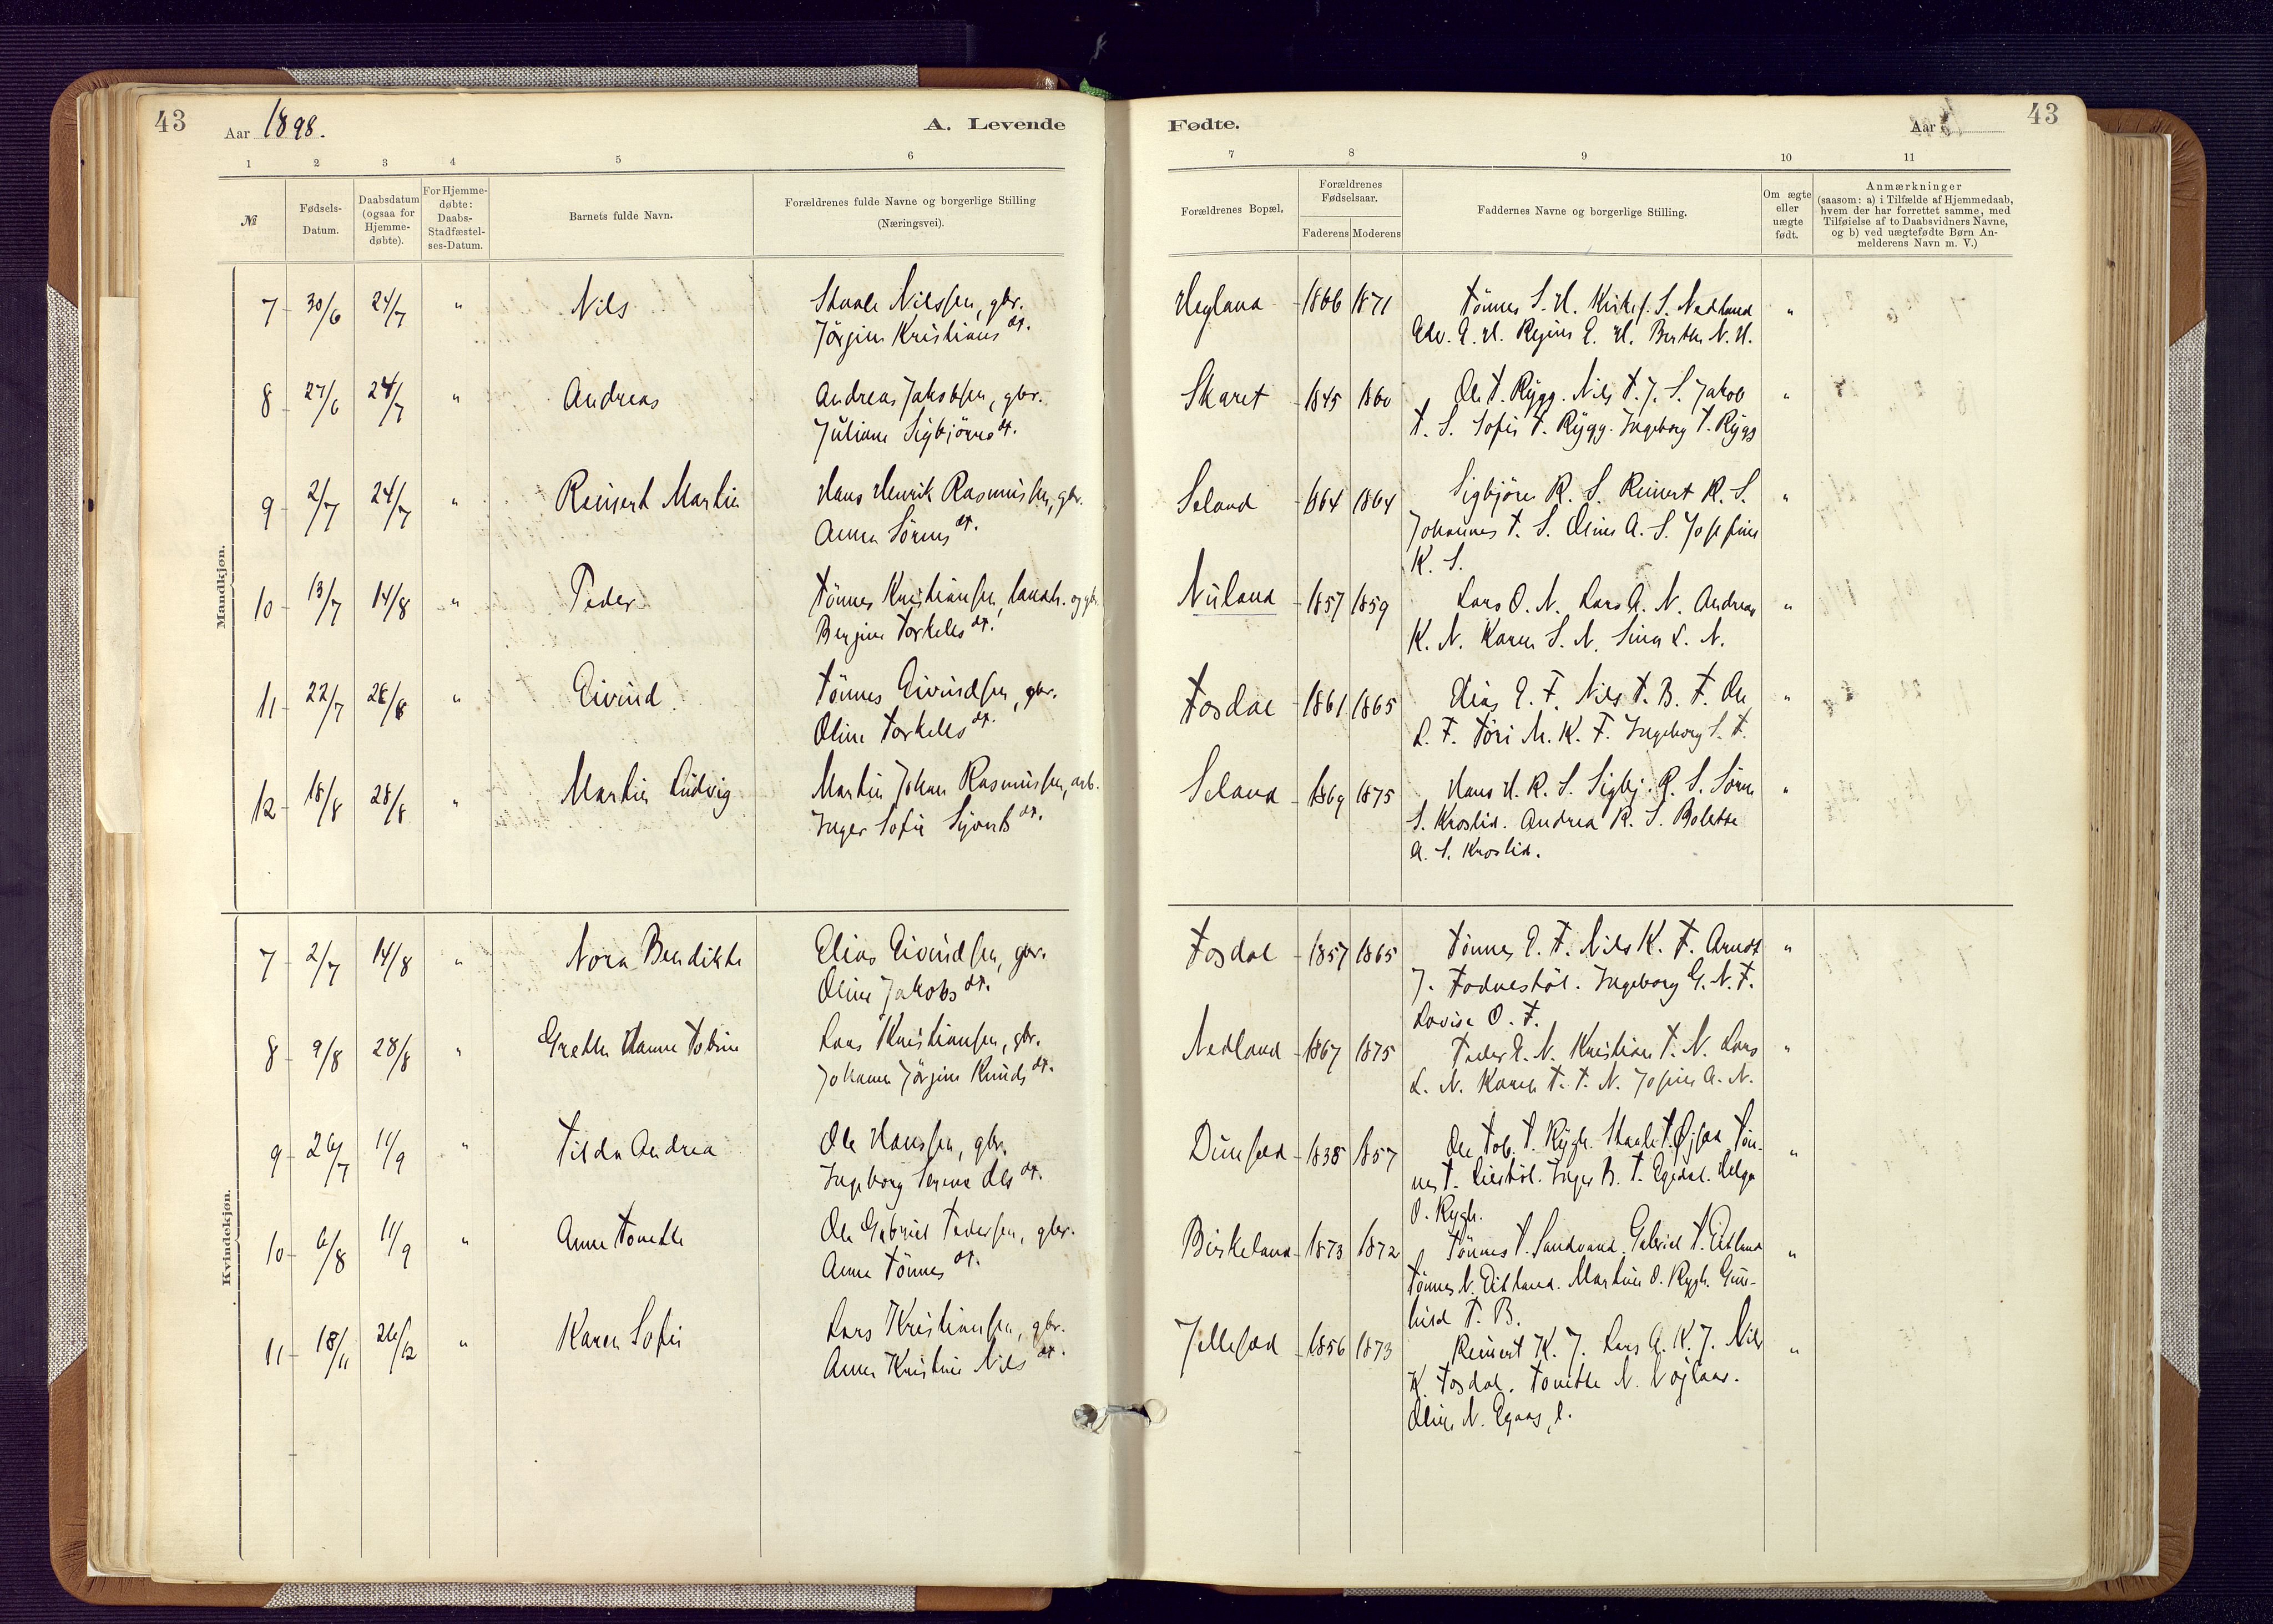 43 Aar 1898. A. Levende
1 2 3 4 5 6
№ Fødsels-Datum. Daabsdatum (ogsaa for Hjemme-døbte). For Hjemme-døbte: Daabs-Stadfæstel-ses-Datum. Barnets fulde Navn. Forældrenes fulde Navne og borgerlige Stilling (Næringsvei).
Mandkjøn.
7 30/6 24/7 " Nils Staale Nilssen, gbr.
Jörgine Kristians dt.
8 27/6 24/7 " Andreas Andreas Jakobsen, gbr.
Juliane Sigbjörns dt.
9 2/7 24/7 " Reinert Martin Hans Henrik Rasmussen, gbr.
Anna Sörens dt.
10 13/7 14/8 " Peder Tönnes Kristiansen, landh. og gbr.
Bergine Torkels dt.
11 22/7 28/8 " Eivind Tönnes Eivindsen, gbr.
Oline Torkels dt.
12 18/8 28/8 " Martin Ludvig Martin Johan Rasmussen, arb.
Inger Sofie Sjverts dt.
Kvindekjøn.
7 2/7 14/8 " Nora Bendikte Elias Eivindsen, gbr.
Oline Jakobs dt.
8 9/8 28/8 " Grethe Hanne Tobine Lars Kristiansen, gbr.
Johanne Jörgine Knuds dt.
9 26/7 11/9 " Tilda Andrea Ole Hanssen, gbr.
Ingeborg Serine Ols dt.
10 6/8 11/9 " Anne Tonette Ole Gabriel Tedersen, gbr.
Anne Tönnes dt.
11 18/11 26/12 " Karen Sofie Lars Kristiansen, gbr.
Anne Kristine Nils dt.
Fødte. Aar 43
7 8 9 10 11
Forældrenes Bopæl. Forældrenes Fødselsaar. Faderens Moderens Faddernes Navne og borgerlige Stilling. Om ægte eller uægte født. Anmærkninger
(saasom: a) i Tilfælde af Hjemmedaab,
hvem der har forrettet samme, med
Tilføielse af to Daabsvidners Navne,
og b) ved uægtefødte Børn An-
melderens Navn m. V.)
Hegland 1866 1871 Tönnes S. H. Kirkes. S. Nedland "
Edv. E. H. Regine E. H. Berthe N. H.
Skaret 1845 1860 Ole T. Rygg. Nils T. J. S. Jakob "
T. S. Sofie T. Rygg. Ingeborg T. Rygg
Seland 1864 1864 Sigbjörn R. S. Reinert R. S. "
Johannes T. S. Oline A. S. Josefine
K. S.
Nuland 1857 1859 Lars O. N. Lars A. N. Andreas "
K. N. Karen S. N. Sina L. N.
Tosdal 1861 1865 Elias E. T. Nils T. B. T. Ole "
L. T. Töri M. K. T. Ingeborg S. T.
Seland 1869 1875 Hans H. R. S. Sigbj. R. S. Sören "
S. Kroslid. Andrea R. S. Bolette
A. S. Kroslid.
Tosdal 1857 1865 Tönnes E. T. Nils K. T. Arndt "
J. Todneshöl. Ingeborg G. N. T.
Lovise O. T.
Nedland 1867 1875 Teder E. N. Kristian T. N. Lars "
L. N. Karen T. T. N. Josine A. N.
Dunsæd 1838 1857 Ole Tob. T. Rygh. Staale T. Øjsæd Tön- "
nes T. Lieshöl. Inger B. T. Egedal. Helga
O. Rygh.
Birkeland 1873 1872 Tönnes T. Sandvand. Gabriel T. Eitland "
Tönnes N. Eitland. Martine O. Rygh. Gun-
hild T. B.
Jellesæd 1856 1873 Reinert K. J. Lars A. K. J. Nils "
K. Tosdal. Tonette N.
Oline N. Egaas, l.